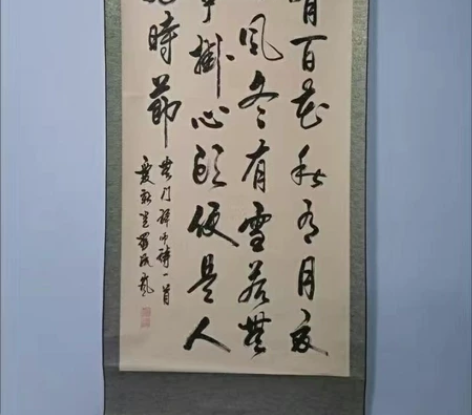 有百花秋有月夏
風冬有雪若無
事掛心頭便是人
好時節
無門禪師詩一首
愛新覺羅